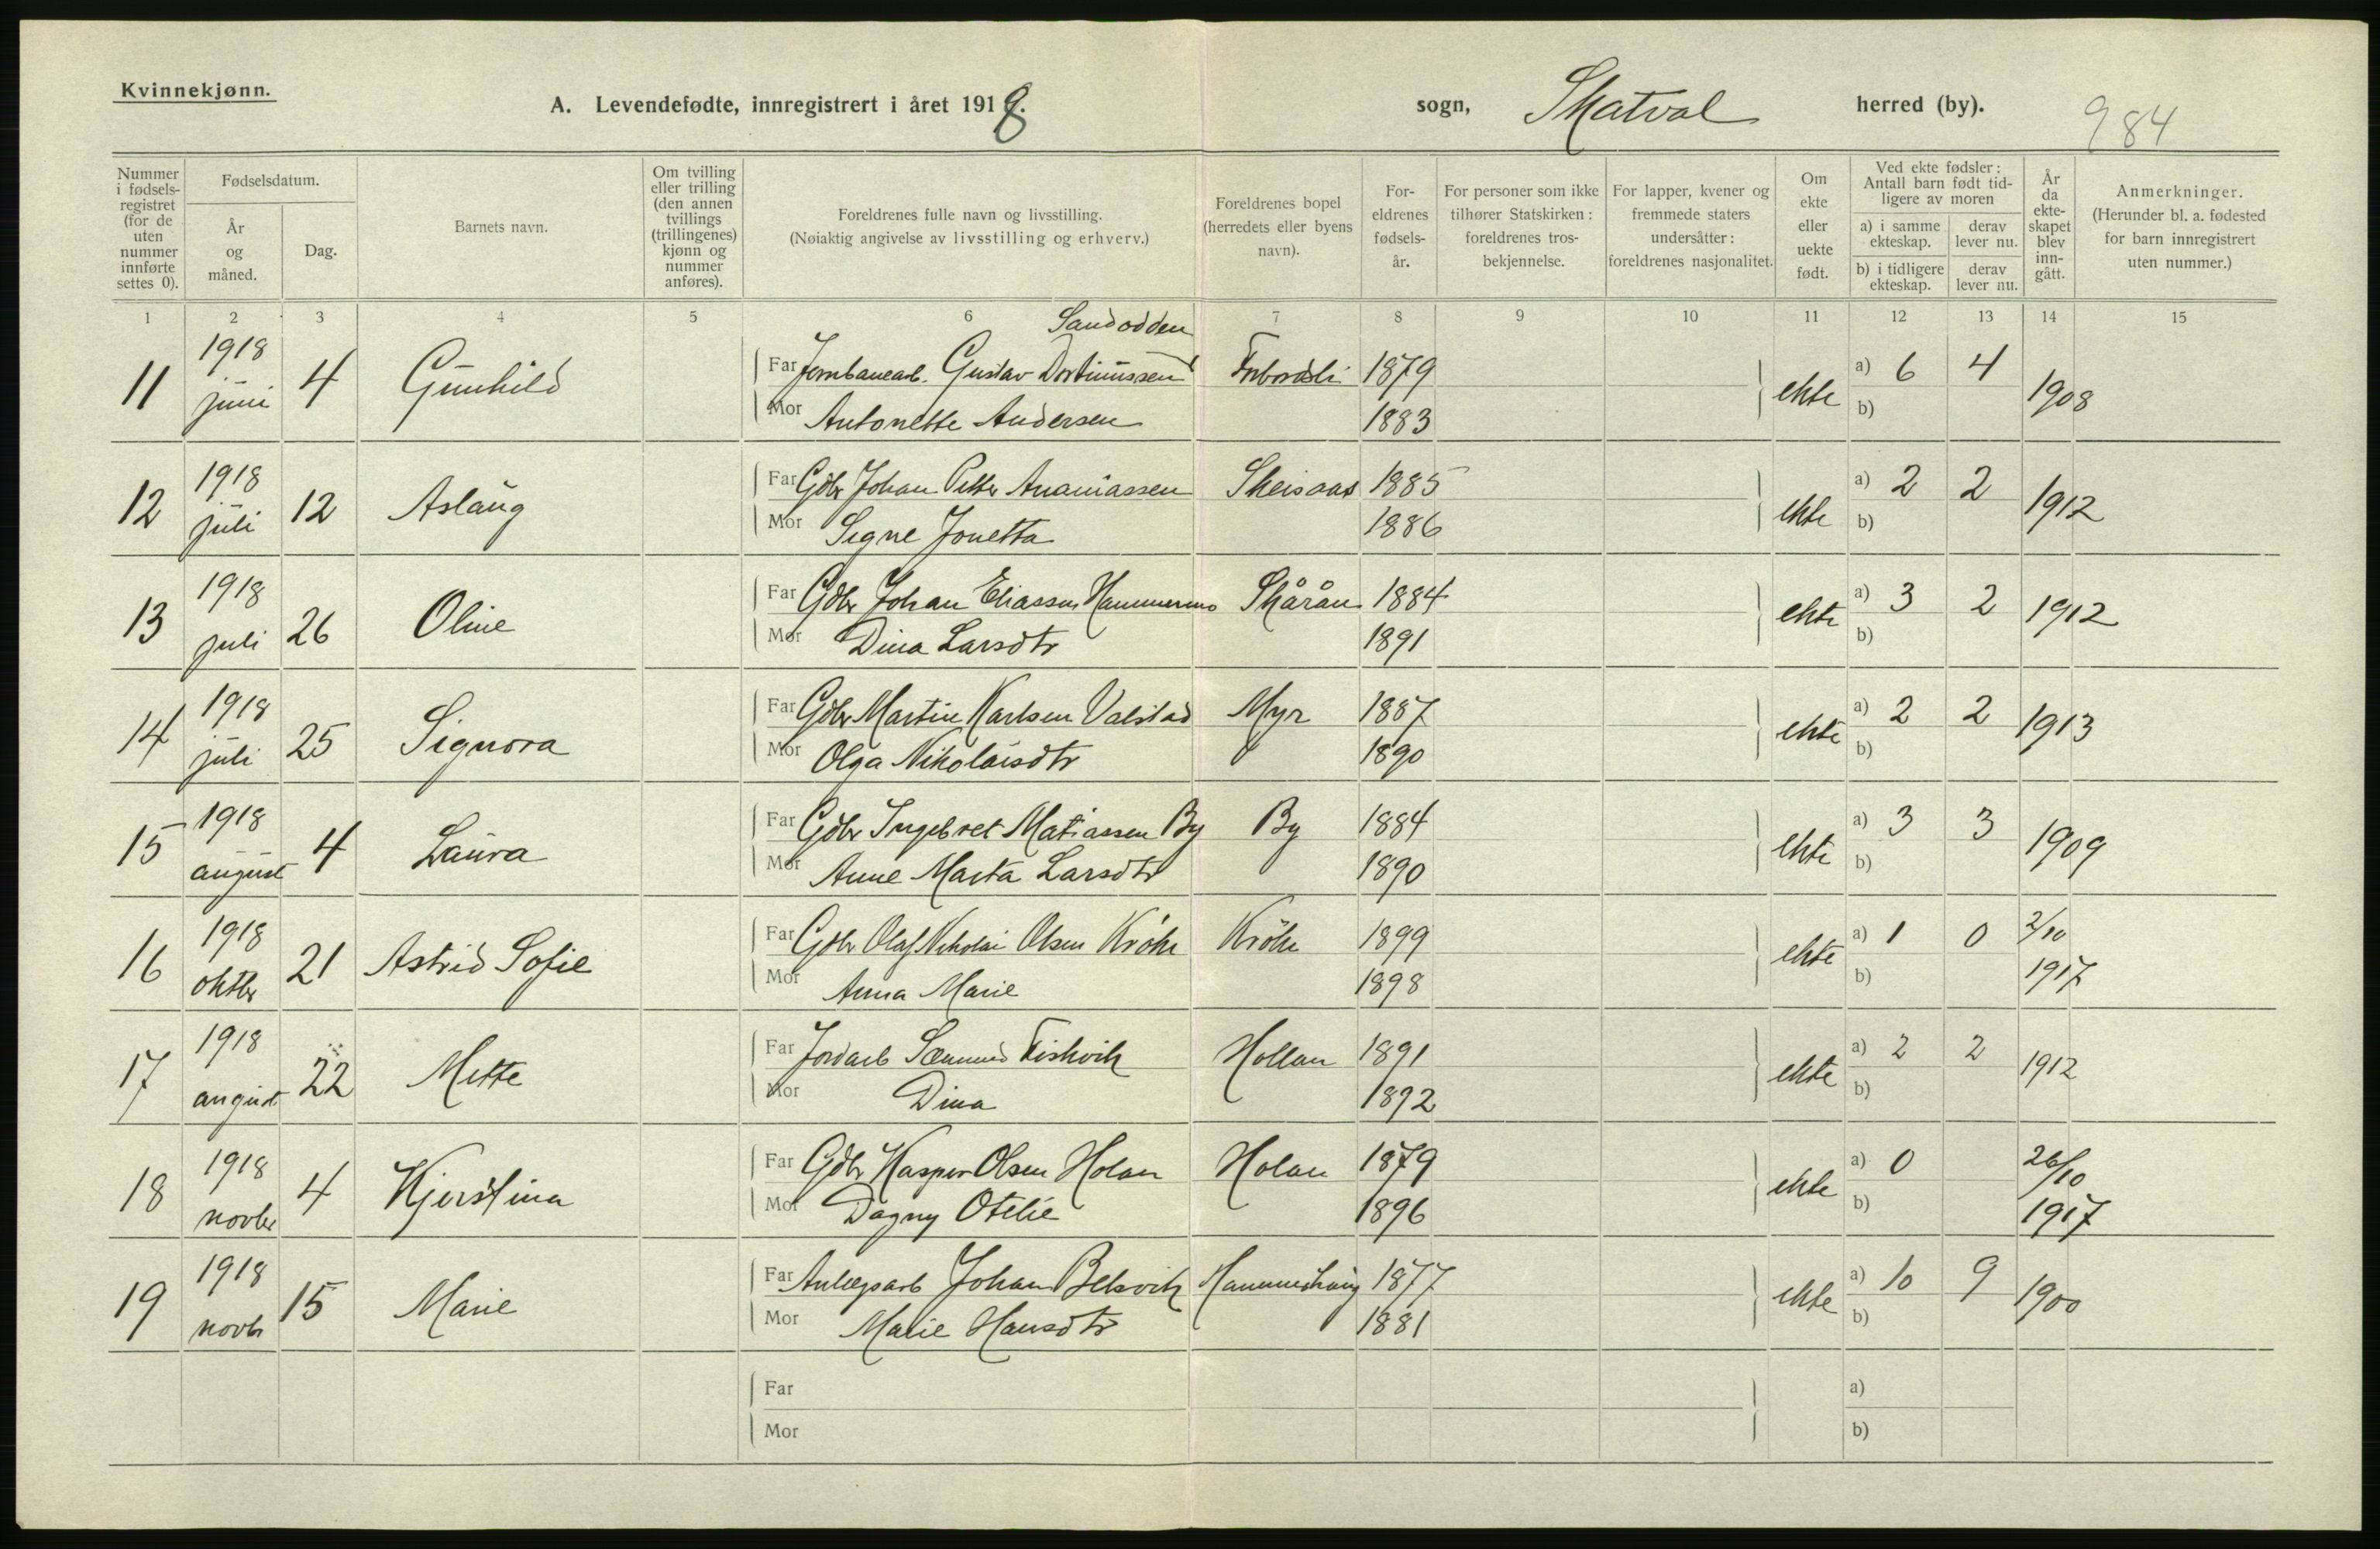 Kvinnekjønn.
A. Levendefødte, innregistrert i året 1918.
sogn, Skatval herred (by).
984
Nummer i fødsels-registret (for de uten nummer innførte settes 0).
Fødselsdatum.
År og måned.
Dag.
Barnets navn.
Om tvilling eller trilling (den annen tvillings (trillingenes) kjønn og nummer anføres).
Foreldrenes fulle navn og livsstilling.
(Nøiaktig angivelse av livsstilling og erhverv.)
Foreldrenes bopel (herredets eller byens navn).
For-eldrenes fødsels-år.
For personer som ikke tilhører Statskirken: foreldrenes tros-bekjennelse.
For lapper, kvener og fremmede staters undersåtter: foreldrenes nasjonalitet.
Om ekte eller uekte født.
Ved ekte fødsler: Antall barn født tid-ligere av moren
a) i samme ekteskap.
derav lever nu.
b) i tidligere ekteskap.
derav lever nu.
År da ekte-skapet blev inn-gått.
Anmerkninger.
(Herunder bl. a. fødested for barn innregistrert uten nummer.)
1 2 3 4 5 6 7 8 9 10 11 12 13 14 15
Sandodden
11 1918 juni 4 Gunhild Far Jernbanearb. Gustav Dortinussen 1879 ekte a) 6 4 1908
Mor Antonette Andersen 1883 b)
12 1918 juli 12 Aslaug Far Gdbr Johan Petter Ananiassen 1885 ekte a) 2 2 1912
Mor Signe Jonetta 1886 b)
13 1918 juli 26 Oline Far Gdbr Johan Eliassen Hammermo Skårån 1884 ekte a) 3 2 1912
Mor Dina Larsdtr 1891 b)
14 1918 juli 25 Signora Far Gdbr Martin Karlsen Valstad Myr 1887 ekte a) 2 2 1913
Mor Olga Nikolaisdtr 1890 b)
15 1918 august 4 Laura Far Gdbr Ingebret Matiassen By By 1884 ekte a) 3 3 1909
Mor Anne Marta Larsdtr 1890 b)
16 1918 oktbr 21 Astrid Sofie Far Gdbr Olaf Nikolai Olsen Kröke Kröke 1899 ekte a) 1 0 2/10 1917
Mor Anna Marie 1898 b)
17 1918 august 22 Mette Far Jordarb Sæmund Fiskvik Hollan 1891 ekte a) 2 2 1912
Mor Dina 1892 b)
18 1918 novbr 4 Kjerstina Far Gdbr Kasper Olsen Holan Holan 1879 ekte a) 0 26/10 1917
Mor Dagny Otelie 1896 b)
19 1918 novbr 15 Marie Far Anlægsarb Johan Belsvik 1877 ekte a) 10 9 1900
Mor Marie Hansdtr 1881 b)
Far a)
Mor b)